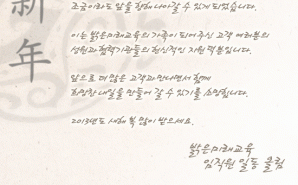 新
年
조금이라도 앞을 향해 나아갈 수 있게 되었습니다.
이는 밝은미래교육의 가족이 되어주신 고객 여러분의
성원과 협력기관들의 헌신적인 지원 덕분입니다.
앞으로 더 많은 고객과 만나면서 함께
희망찬 내일을 만들어 갈 수 있기를 소망합니다.
2013년도 새해 복 많이 받으세요.
밝은미래교육
임직원 일동 올림